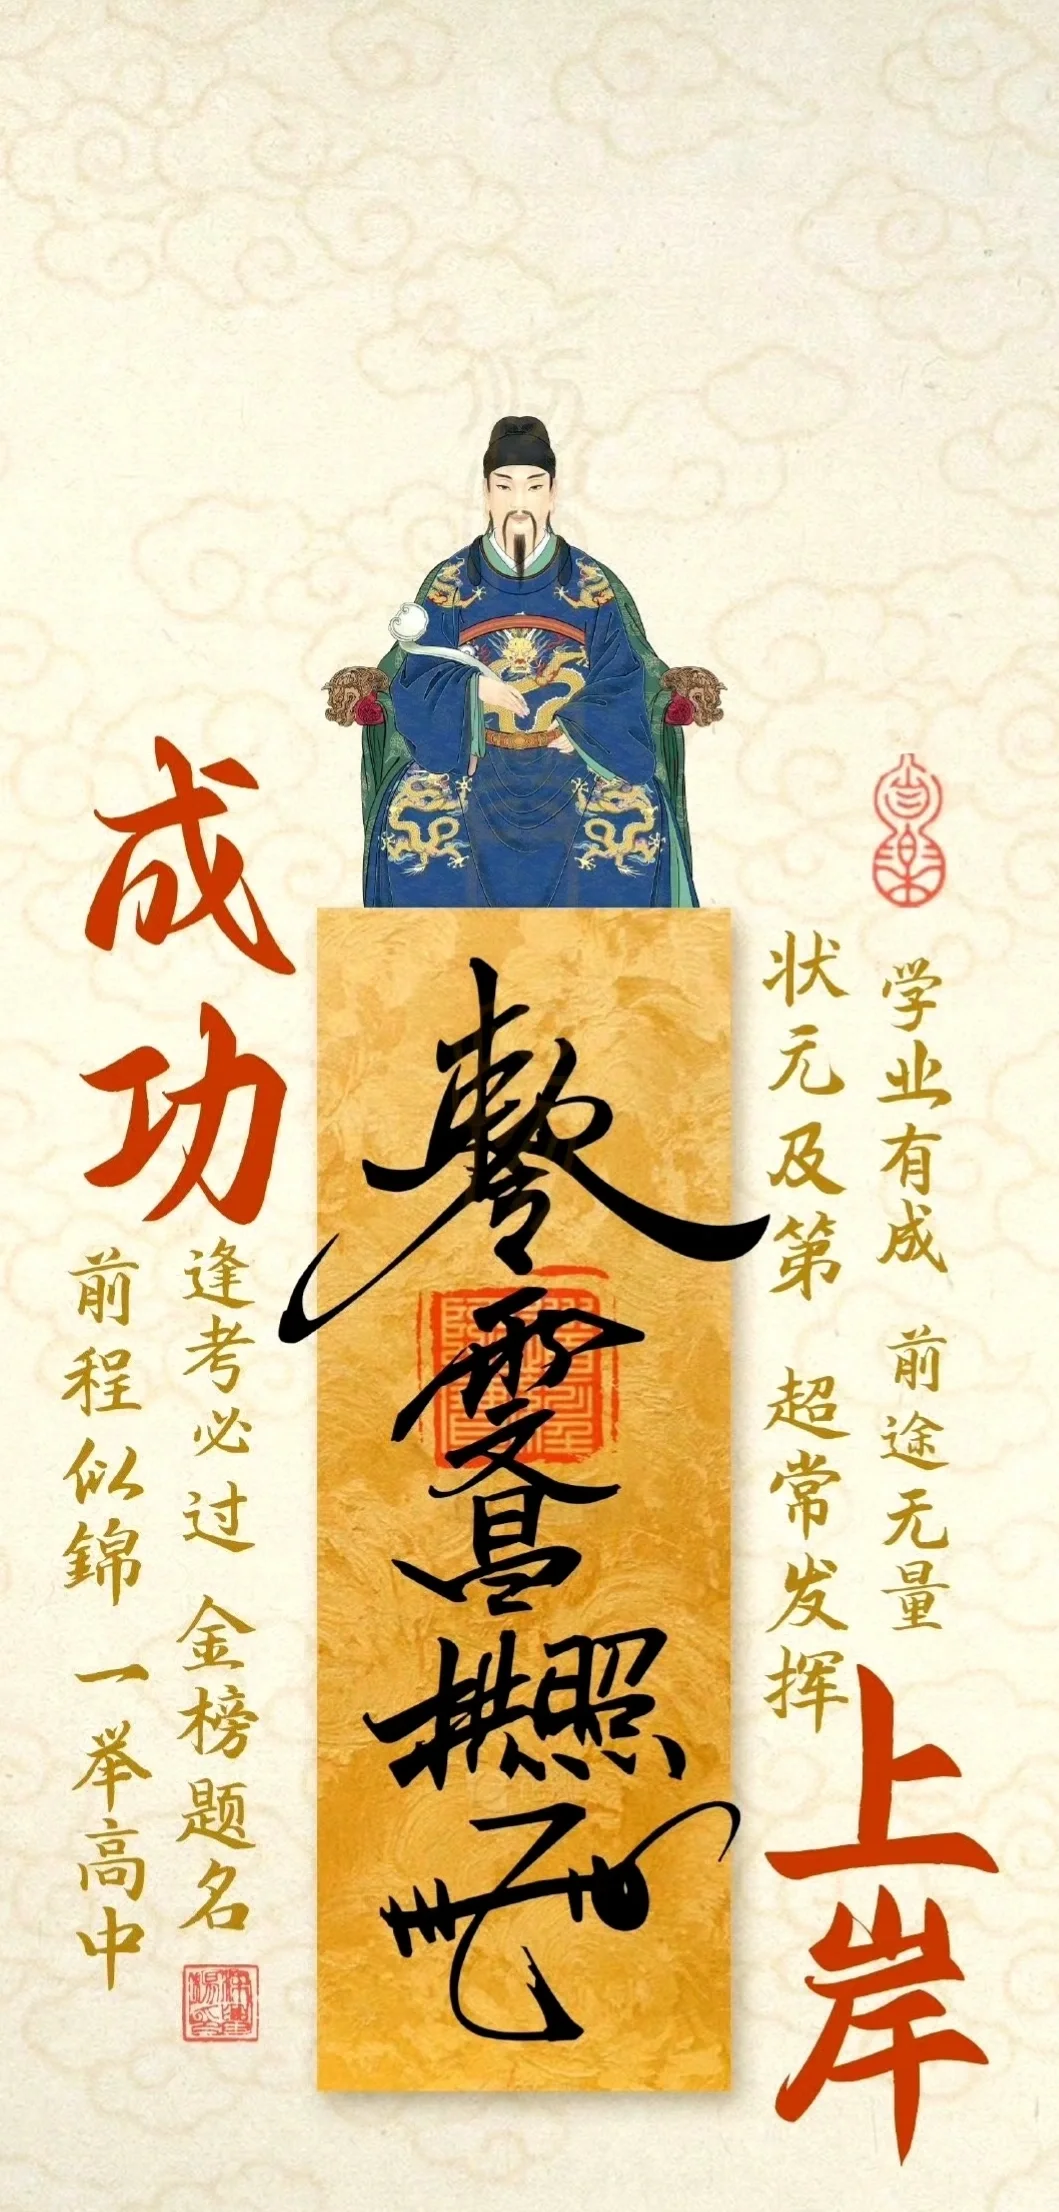 成功
上岸
学业有成 前途无量
状元及第 超常发挥
逢考必过 金榜题名
前程似錦 一举高中
文昌拱照